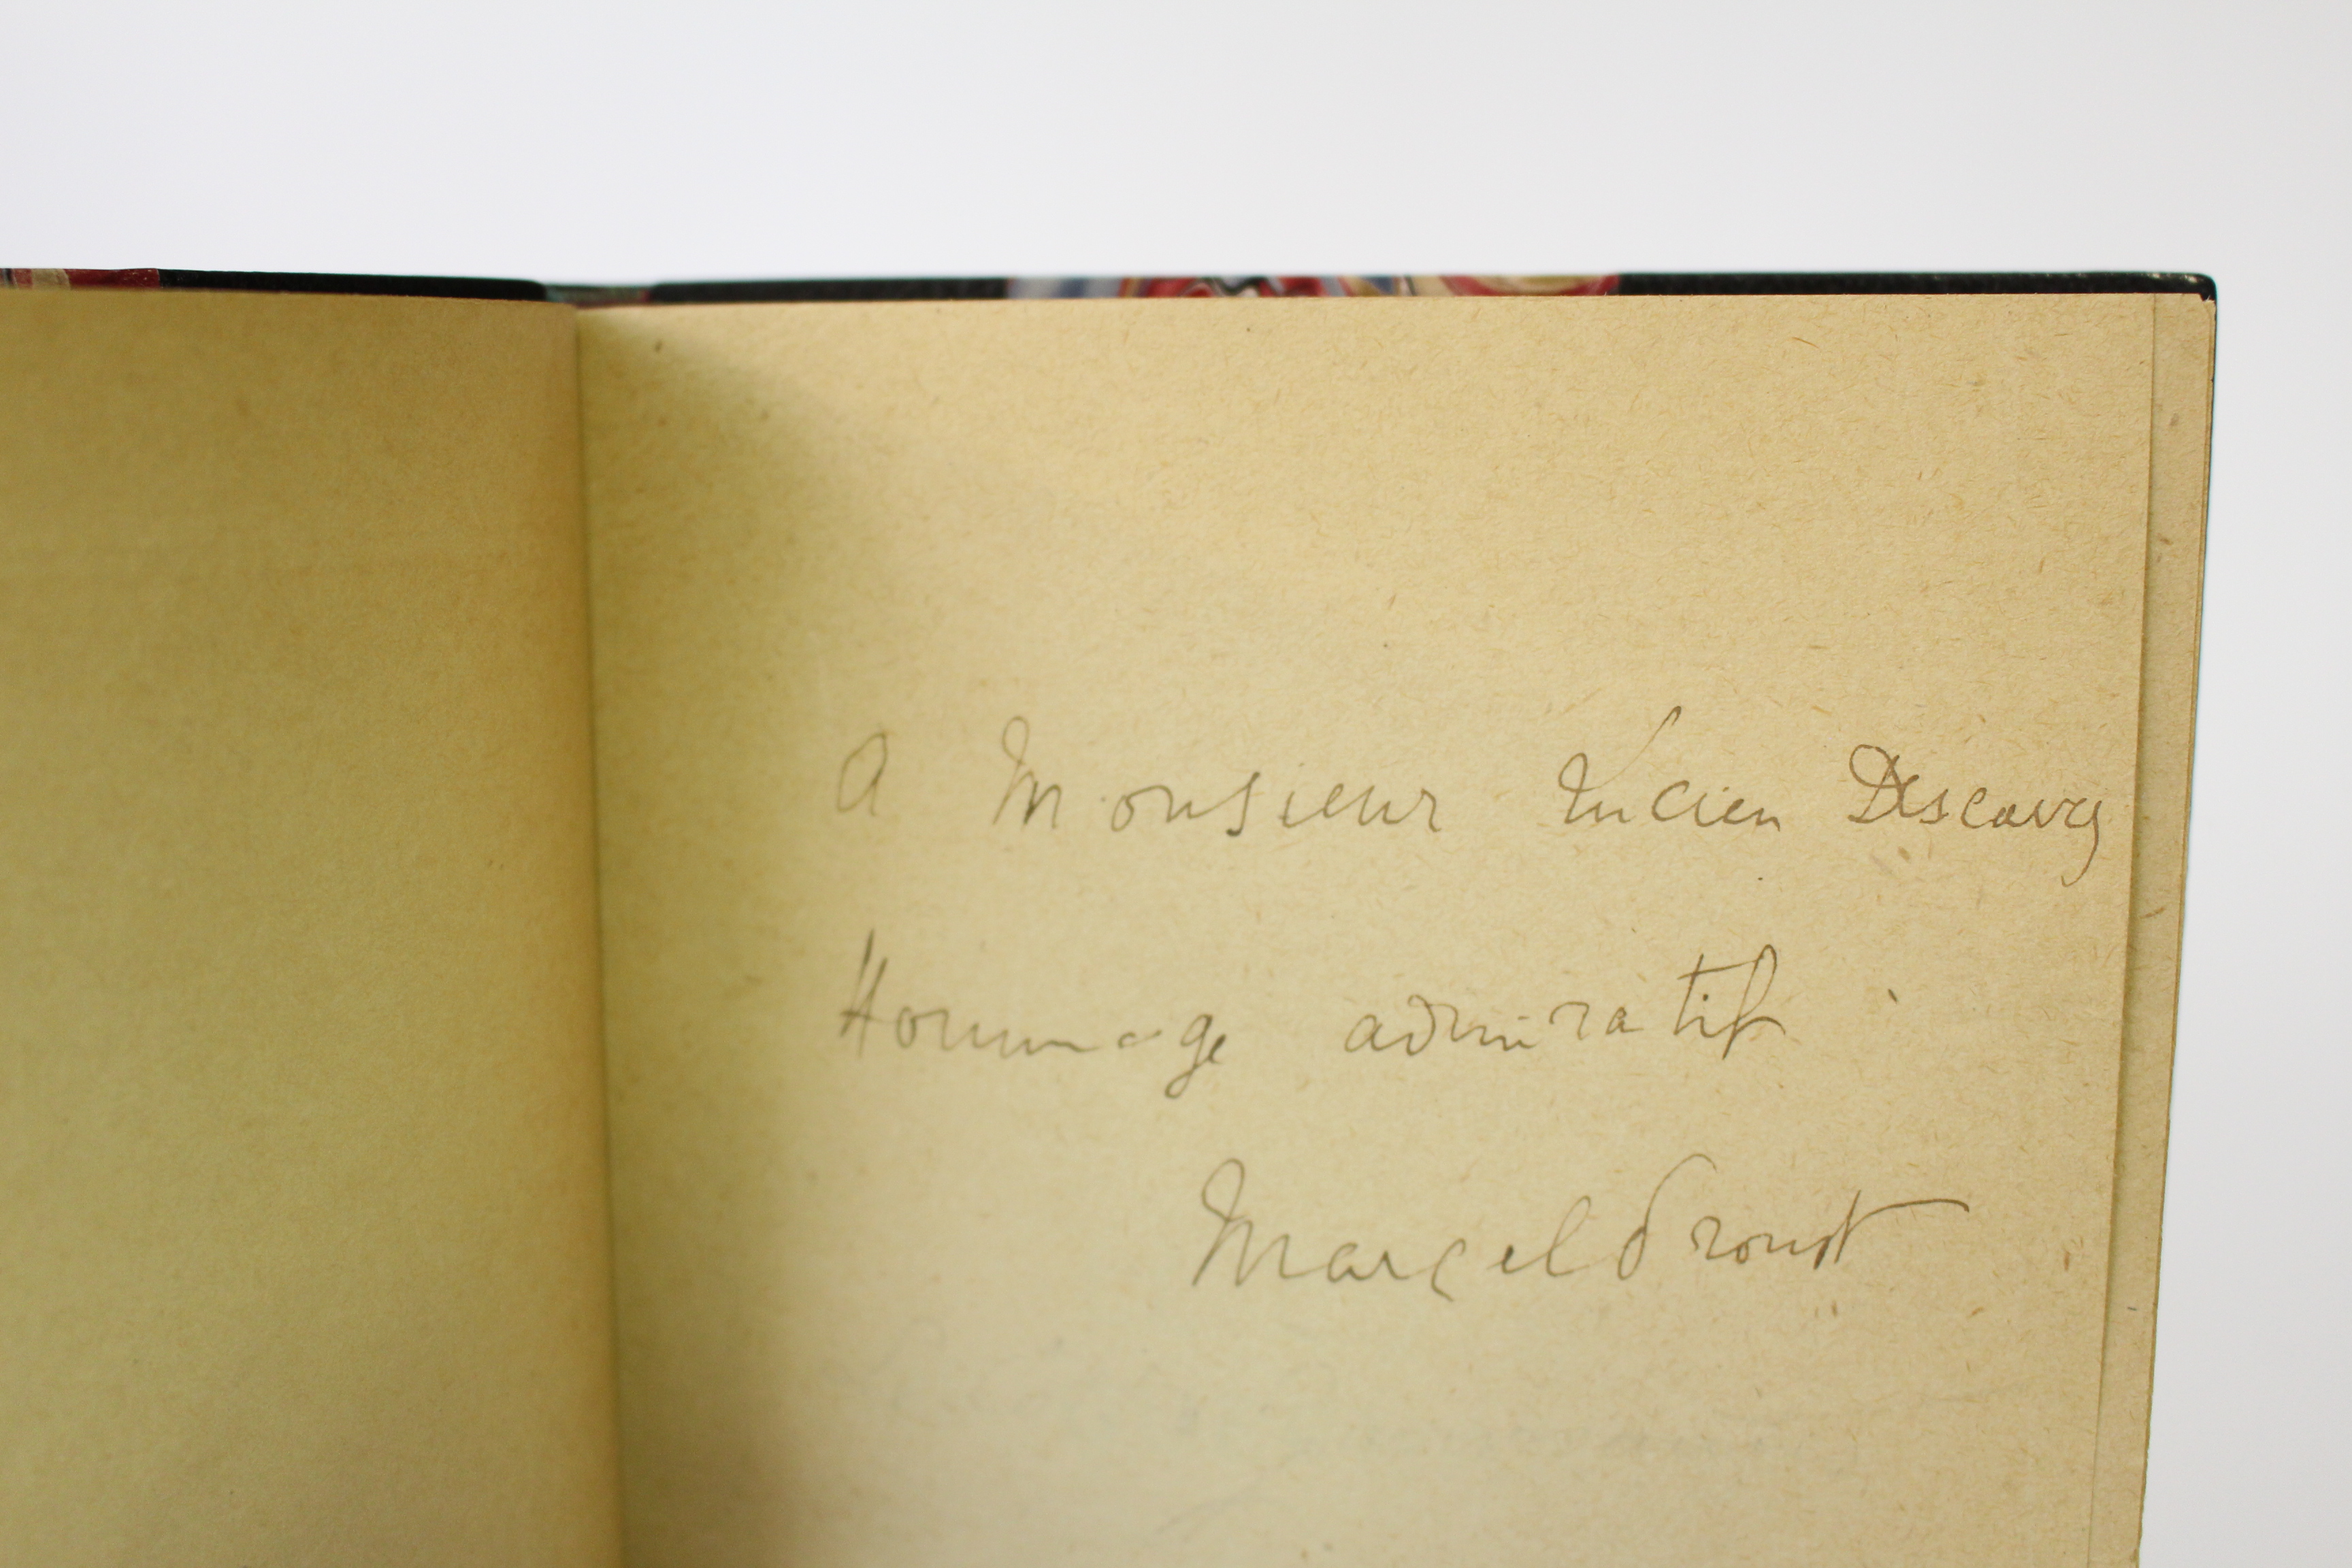 A Monsieur Lucien Descaves
Hommage admiratif
Marcel Proust